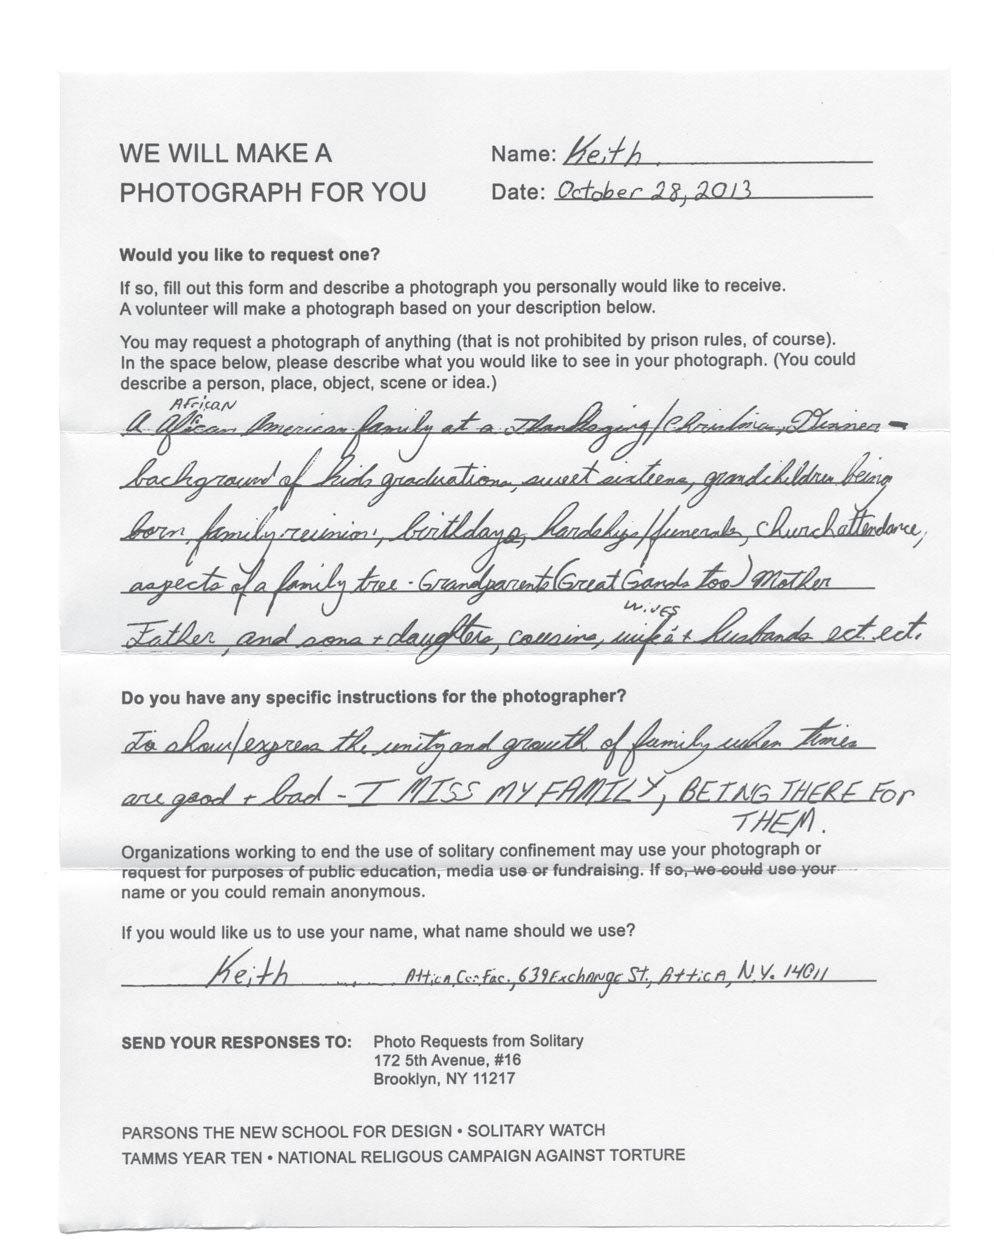 WE WILL MAKE A
PHOTOGRAPH FOR YOU
Name: Keith
Date: October 28, 2013
Would you like to request one?
If so, fill out this form and describe a photograph you personally would like to receive.
A volunteer will make a photograph based on your description below.
You may request a photograph of anything (that is not prohibited by prison rules, of course).
In the space below, please describe what you would like to see in your photograph. (You could
describe a person, place, object, scene or idea.)
AFricaN
A African American family at a Thanksgving/Christmas, Dinner -
background of kids graduations, sweet sixteens, grandchildren being
born, family reunion, birthdays, hardships/funerals, church attendance,
aspects of a family tree - Grandparents (Great Gands too) Mother
wives
Father, and sons + daughters, cousins, wife's + husbands ect. ect.
Do you have any specific instructions for the photographer?
To show/express the unity and growth of family when times
are good + bad - I MISS MY FAMILY, BEING THERE FOR
THEM.
Organizations working to end the use of solitary confinement may use your photograph or
request for purposes of public education, media use or fundraising. If so, we could use your
name or you could remain anonymous.
If you would like us to use your name, what name should we use?
Keith Attica Cor. Fac., 639 Exchange St., Attica, N.Y. 14011
SEND YOUR RESPONSES TO: Photo Requests from Solitary
172 5th Avenue, #16
Brooklyn, NY 11217
PARSONS THE NEW SCHOOL FOR DESIGN • SOLITARY WATCH
TAMMS YEAR TEN • NATIONAL RELIGOUS CAMPAIGN AGAINST TORTURE